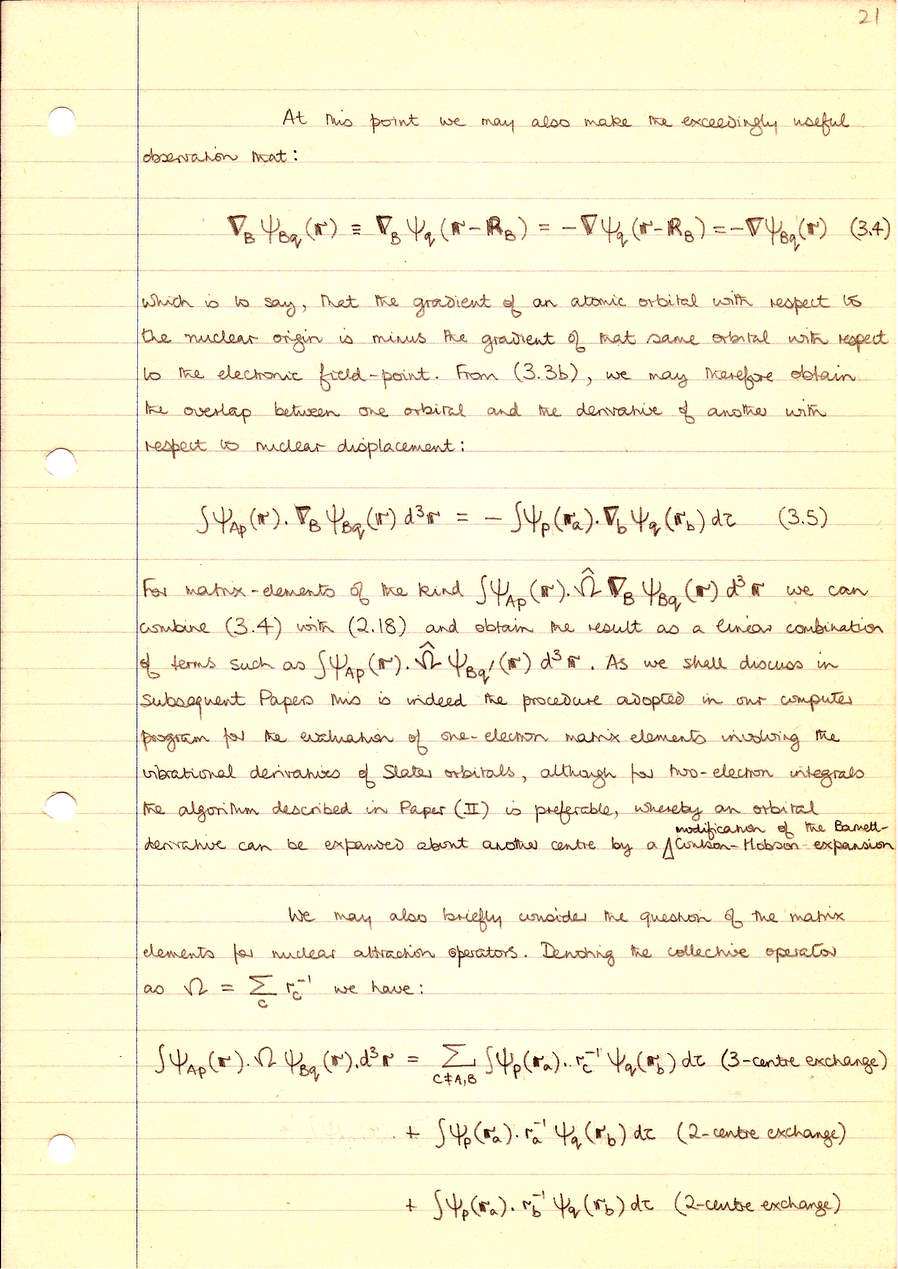 21
At this point we may also make the exceedingly useful
observation that:
∇_B ψ_Bq(𝕣) ≡ ∇_B ψ_q(𝕣-ℝ_B) = -∇ψ_q(𝕣-ℝ_B) = -∇ψ_Bq(𝕣) (3.4)
which is to say, that the gradient of an atomic orbital with respect to
the nuclear origin is minus the gradient of that same orbital with respect
to the electronic field-point. From (3.3b), we may therefore obtain
the overlap between one orbital and the derivative of another with
respect to nuclear displacement:
∫ψ_Ap(𝕣).∇_B ψ_Bq(𝕣) d³𝕣 = - ∫ψ_p(𝕣_a).∇_b ψ_q(𝕣_b) dτ (3.5)
For matrix-elements of the kind ∫ψ_Ap(𝕣).Ω̂ ∇_B ψ_Bq(𝕣) d³𝕣 we can
combine (3.4) with (2.18) and obtain the result as a linear combination
of terms such as ∫ψ_Ap(𝕣).Ω̂ ψ_Bq′(𝕣) d³𝕣. As we shall discuss in
subsequent Papers this is indeed the procedure adopted in our computer
program for the evaluation of one-electron matrix elements involving the
vibrational derivatives of Slater orbitals, although for two-electron integrals
the algorithm described in Paper (II) is preferable, whereby an orbital
modification of the Barnett-
derivative can be expanded about another centre by a Coulson-Hobson expansion
We may also briefly consider the question of the matrix
elements for nuclear attraction operators. Denoting the collective operator
as Ω = ∑_C r_c⁻¹ we have:
∫ψ_Ap(𝕣).Ω ψ_Bq(𝕣).d³𝕣 = ∑_C≠A,B ∫ψ_p(𝕣_a).r_c⁻¹ ψ_q(𝕣_b) dτ (3-centre exchange)
+ ∫ψ_p(𝕣_a).r_a⁻¹ ψ_q(𝕣_b) dτ (2-centre exchange)
+ ∫ψ_p(𝕣_a).r_b⁻¹ ψ_q(𝕣_b) dτ (2-centre exchange)